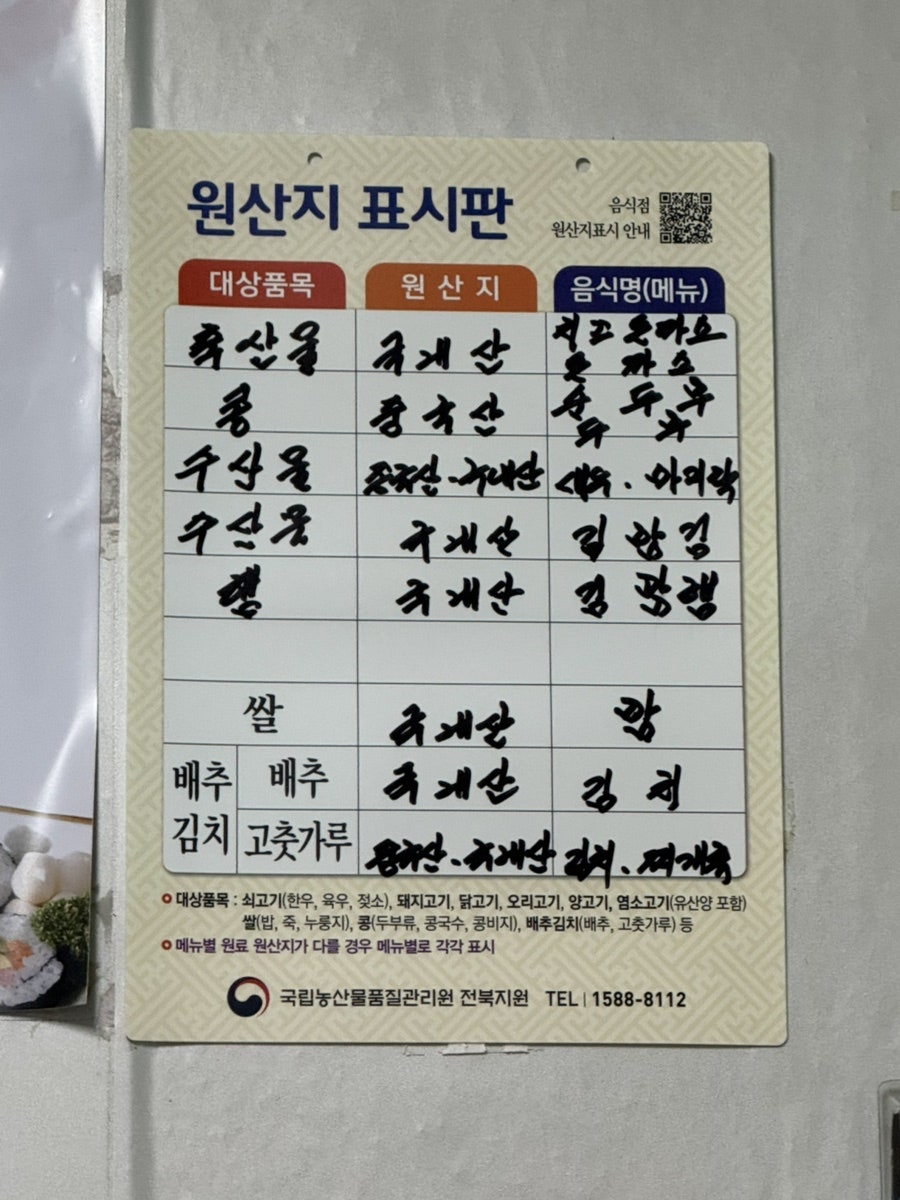 원산지 표시판
음식점
원산지표시 안내
대상품목 원산지 음식명(메뉴)
축산물 국내산 치즈돈까스
돈까스
콩 중국산 순두부
두부
수산물 중국산·국내산 새우·바지락
수산물 국내산 김밥김
햄 국내산 김밥햄
쌀 국내산 밥
배추김치 배추 국내산 김치
고춧가루 중국산·국내산 김치·찌개류
대상품목 : 쇠고기(한우, 육우, 젖소), 돼지고기, 닭고기, 오리고기, 양고기, 염소고기(유산양 포함)
쌀(밥, 죽, 누룽지), 콩(두부류, 콩국수, 콩비지), 배추김치(배추, 고춧가루) 등
메뉴별 원료 원산지가 다를 경우 메뉴별로 각각 표시
국립농산물품질관리원 전북지원 TEL | 1588-8112